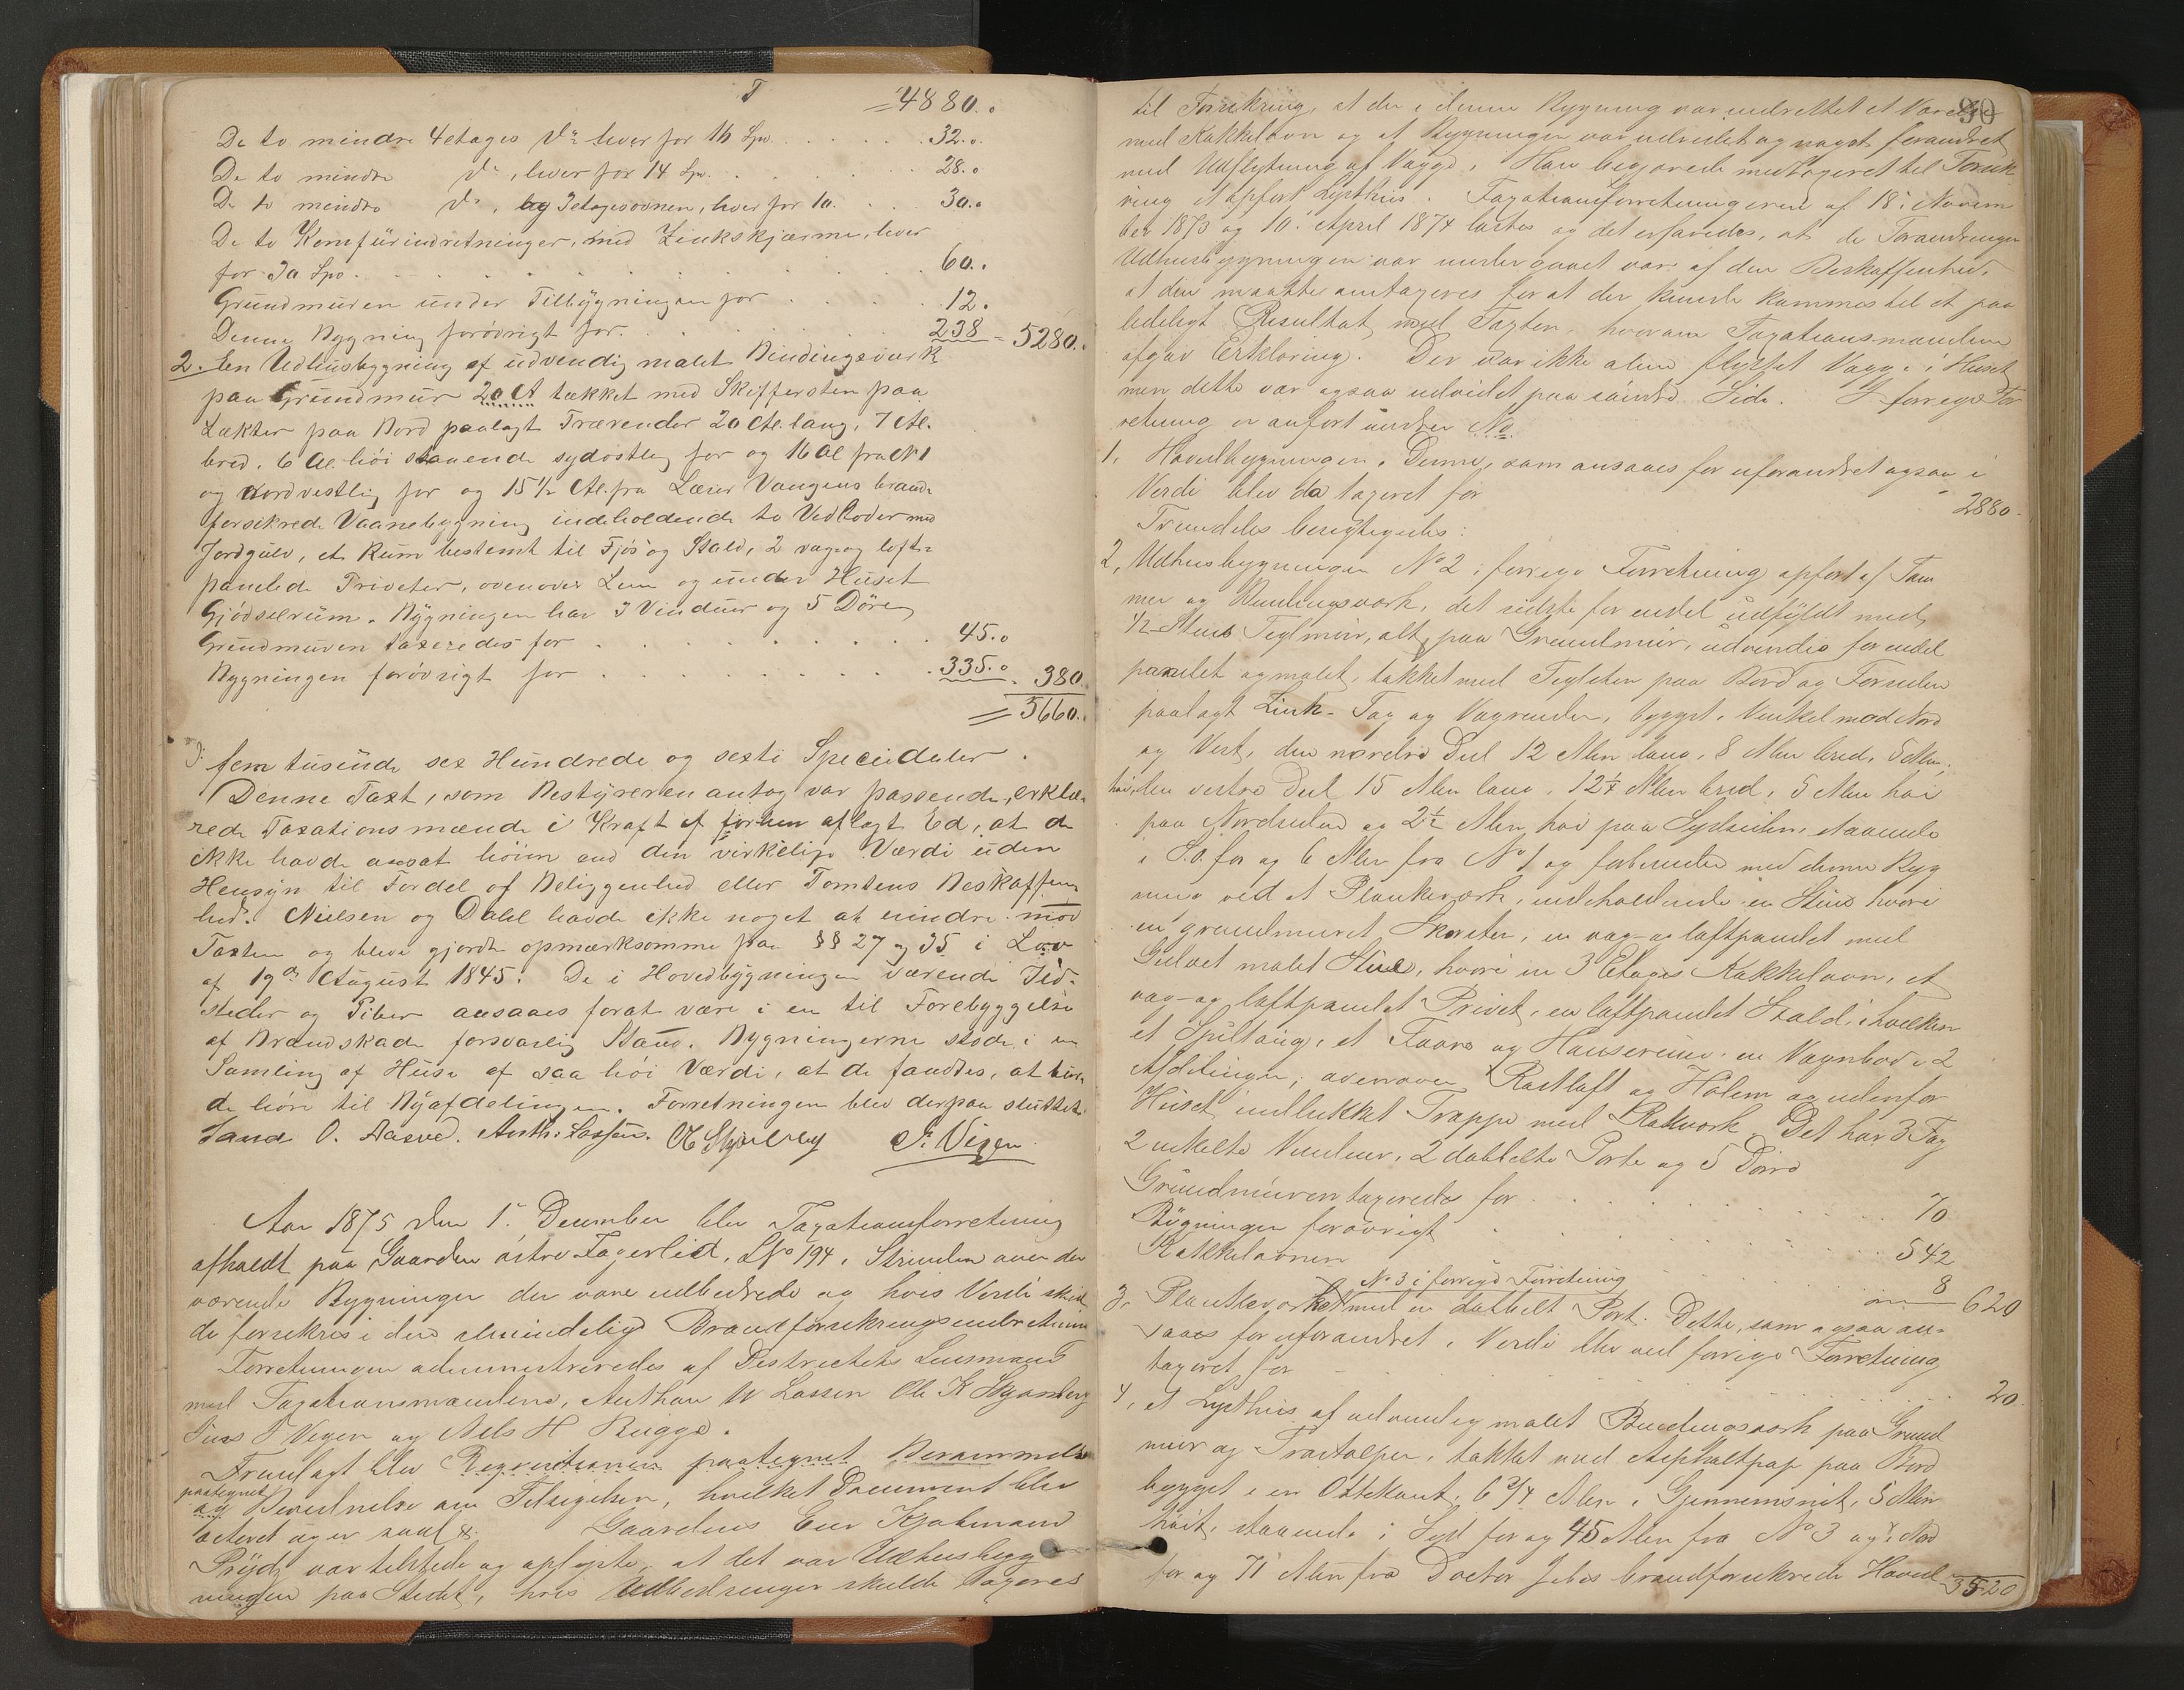 T = 4880.
De to mindre 4etages do hver for 16 Spd. 32.
De to mindre do, hver for 14 Spd. 28.
De to mindre do, og 3etagesovnen, hver for 10. 30.
De to Komfürindretninger, med Zinkskjærme, hver
for 30 Spd. 60.
Grundmüren ünder Tilbÿgningen for 12.
Denne Bygning forövrigt for. 238 = 5280.
2. En Udhüsbygning af üdvendig malet Bindingsværk
paa Gründmür 20 Al tækket med Skiffersten paa
Lækter paa Bord paalagt Trærender 20 Al. lang, 7 Al.
bred, 6 Al. höi staaende sydostlig for og 16 Al fra No 1
og nordvestlig for og 15 1/2 Al. fra Lærer Vangens brand-
forsikrede Vaanebygning indeholdende to Vedboder med
Jordgulv, et Rüm bestemt til Fjös og Stald, 2 væg og loft-
panelede Priveter, ovenover Lem og ünder Hüset
Gjödselrüm. Bÿgningen har 3 Vindüer og 5 Döre,
Gründmüren taxeredes for 45.
Bygningen forövrigt for 335. 380.
= 5660.
3: fem tüsinde sex Hündrede og sexti Speciedaler.
Denne Taxt, som Bestÿreren antog var passende, erklæ-
rede Taxationsmænde i Kraft af forhen aflagt Ed, at de
ikke havde ansat höiere end den virkelige Værdi üden
Hensÿn til Fordel af Beliggenhed eller Tomtens Beskaffen-
hed. Nielsen og Dahl havde ikke noget at erindre mod
Taxten og bleve gjordte opmærksomme paa §§ 27 og 35 i Lov
af 19de August 1845. De i Hovedbÿgningen værende Ild-
steder og Piber ansaaes forat være i en til Forebyggelse
af Brandskade forsvarlig Stand. Bygningerne stode i en
Samling af Hüse af saa höi Værdi, at de fandtes, at bür-
de höre til Bÿafdelingen. Forretningen blev derpaa slüttet.
Sand O. Aasved. Anth. Lassen. O K Skjælberg P. Vigen
Aar 1875 den 1. December blev Taxationsforretning
afholdt paa Gaarden östre Fagerlid, LNo 194, Strinden over der
værende Bygninger der vare udbedrede og hvis Verdi skul
de forsikres i den almindelige Brandforsikringsindretning
Forretningen administreredes af Districtets Lensmand
med Taxationsmændene, Anthon W Lassen Ole K Skjælberg
P Vigen og Nels H Rügge.
Fremlagt blev Requisitionen paategnet Berammelse
paategnet
og Bevidnelse om Tilsigelsen, hvilket Document blev
acteret og er saal. Gaardens Eier Kjøbmand
Prÿdz var tilstede og oplÿste, at det var Udhusbÿg
ningen paa Stedet, hvis Udbedringer skulde taxeres
90
til Forsikring, at der i denne Bygning var indrettet et Værelse
med Kakkelovn og at Bygningen var udvidet og noget forandret
med Udflytning af Vægge. Han begjærede medtaxeret til Forsik
ring et opfört Lysthus. Taxationsforretningerne af 18. Novem
ber 1873 og 10. April 1874 læstes og det erfaredes, at de Forandringer
Udhusbygningen var undergaaet vare af den Beskaffenhed,
at den maatte omtaxeres for at der kunde kommes til et paa
lideligt Resultat med Taxten, hvorom Taxationsmændene
afgav Erklæring. Der var ikke alene flyttet Vægge i Huset
men dette var ogsaa udvidet paa Side. I forrige For
retning er anfört under No
1, Hovedbygningen. Denne, som ansaaes for uforandret ogsaa i
Verdi blev da taxeret for 2880.
Fremdeles besigtigedes:
2, Udhusbygningen No 2 i forrige Forretning opfört af Töm
mer og Bindingsværk, det sidste for endel üdfÿldt med
1/2 Stens Teglmür, alt paa Grundmür, üdvendig for endel
panelet og malet, tækket med Teglsten paa Bord og Forsiden
paalagt Zink-Tag og Tagrender, bygget i Vinkel mod Nord
og Vest, den nordre Del 12 Alen lang, 8 Alen bred, 5 Alen
höi, den vestre Del 15 Alen lang, 12 1/2 Alen bred, 5 Alen höi
paa Nordsiden og 2 1/2 Alen höi paa Sydsiden, staaende
i S.O. for og 6 Alen fra No 1 og forbunden med denne Byg
ning ved et Plankeværk, indeholdende en Stue hvori
en grundmuret Skorsten, en væg- og loftpanelet med
Gulvet malet Stue, hvori en 3 Etages Kakkelovn, et
væg- og loftpanelet Privet, en loftpanelet Stald, i hvilken
et Spiltoug, et Faare og Hönserum, en Vognbod i 2
Afdelinger, ovenover Rastloft og Hölem og udenfor
Hüset indlukket Trappe med Rækværk. Det har 3 Fag
2 enkelte Vinduer, 2 dobbelte Porte og 5 Döre
Gründmüren taxeredes for 70
Bÿgningen forövrigt 542
Kakkelovnen 8 620
No 3 i forrige Forretning
3, Plankeværket med en dobbelt Port. Dette, som ogsaa an-
saaes for uforandret i Verdi blev ved forrige Forretning
taxeret for 20.
4, et Lysthus af udvendig malet Bindingsværk paa Grund
mur og Træstolper, tækket med Asphaltpap paa Bord
bygget i en Ottekant, 6 3/4 Alen i Gjennemsnit, 5 Alen
höit, staaende i Syd for og 45 Alen fra No 3 og i Nord
for og 71 Alen fra Doctor brandforsikrede Hoved
3520